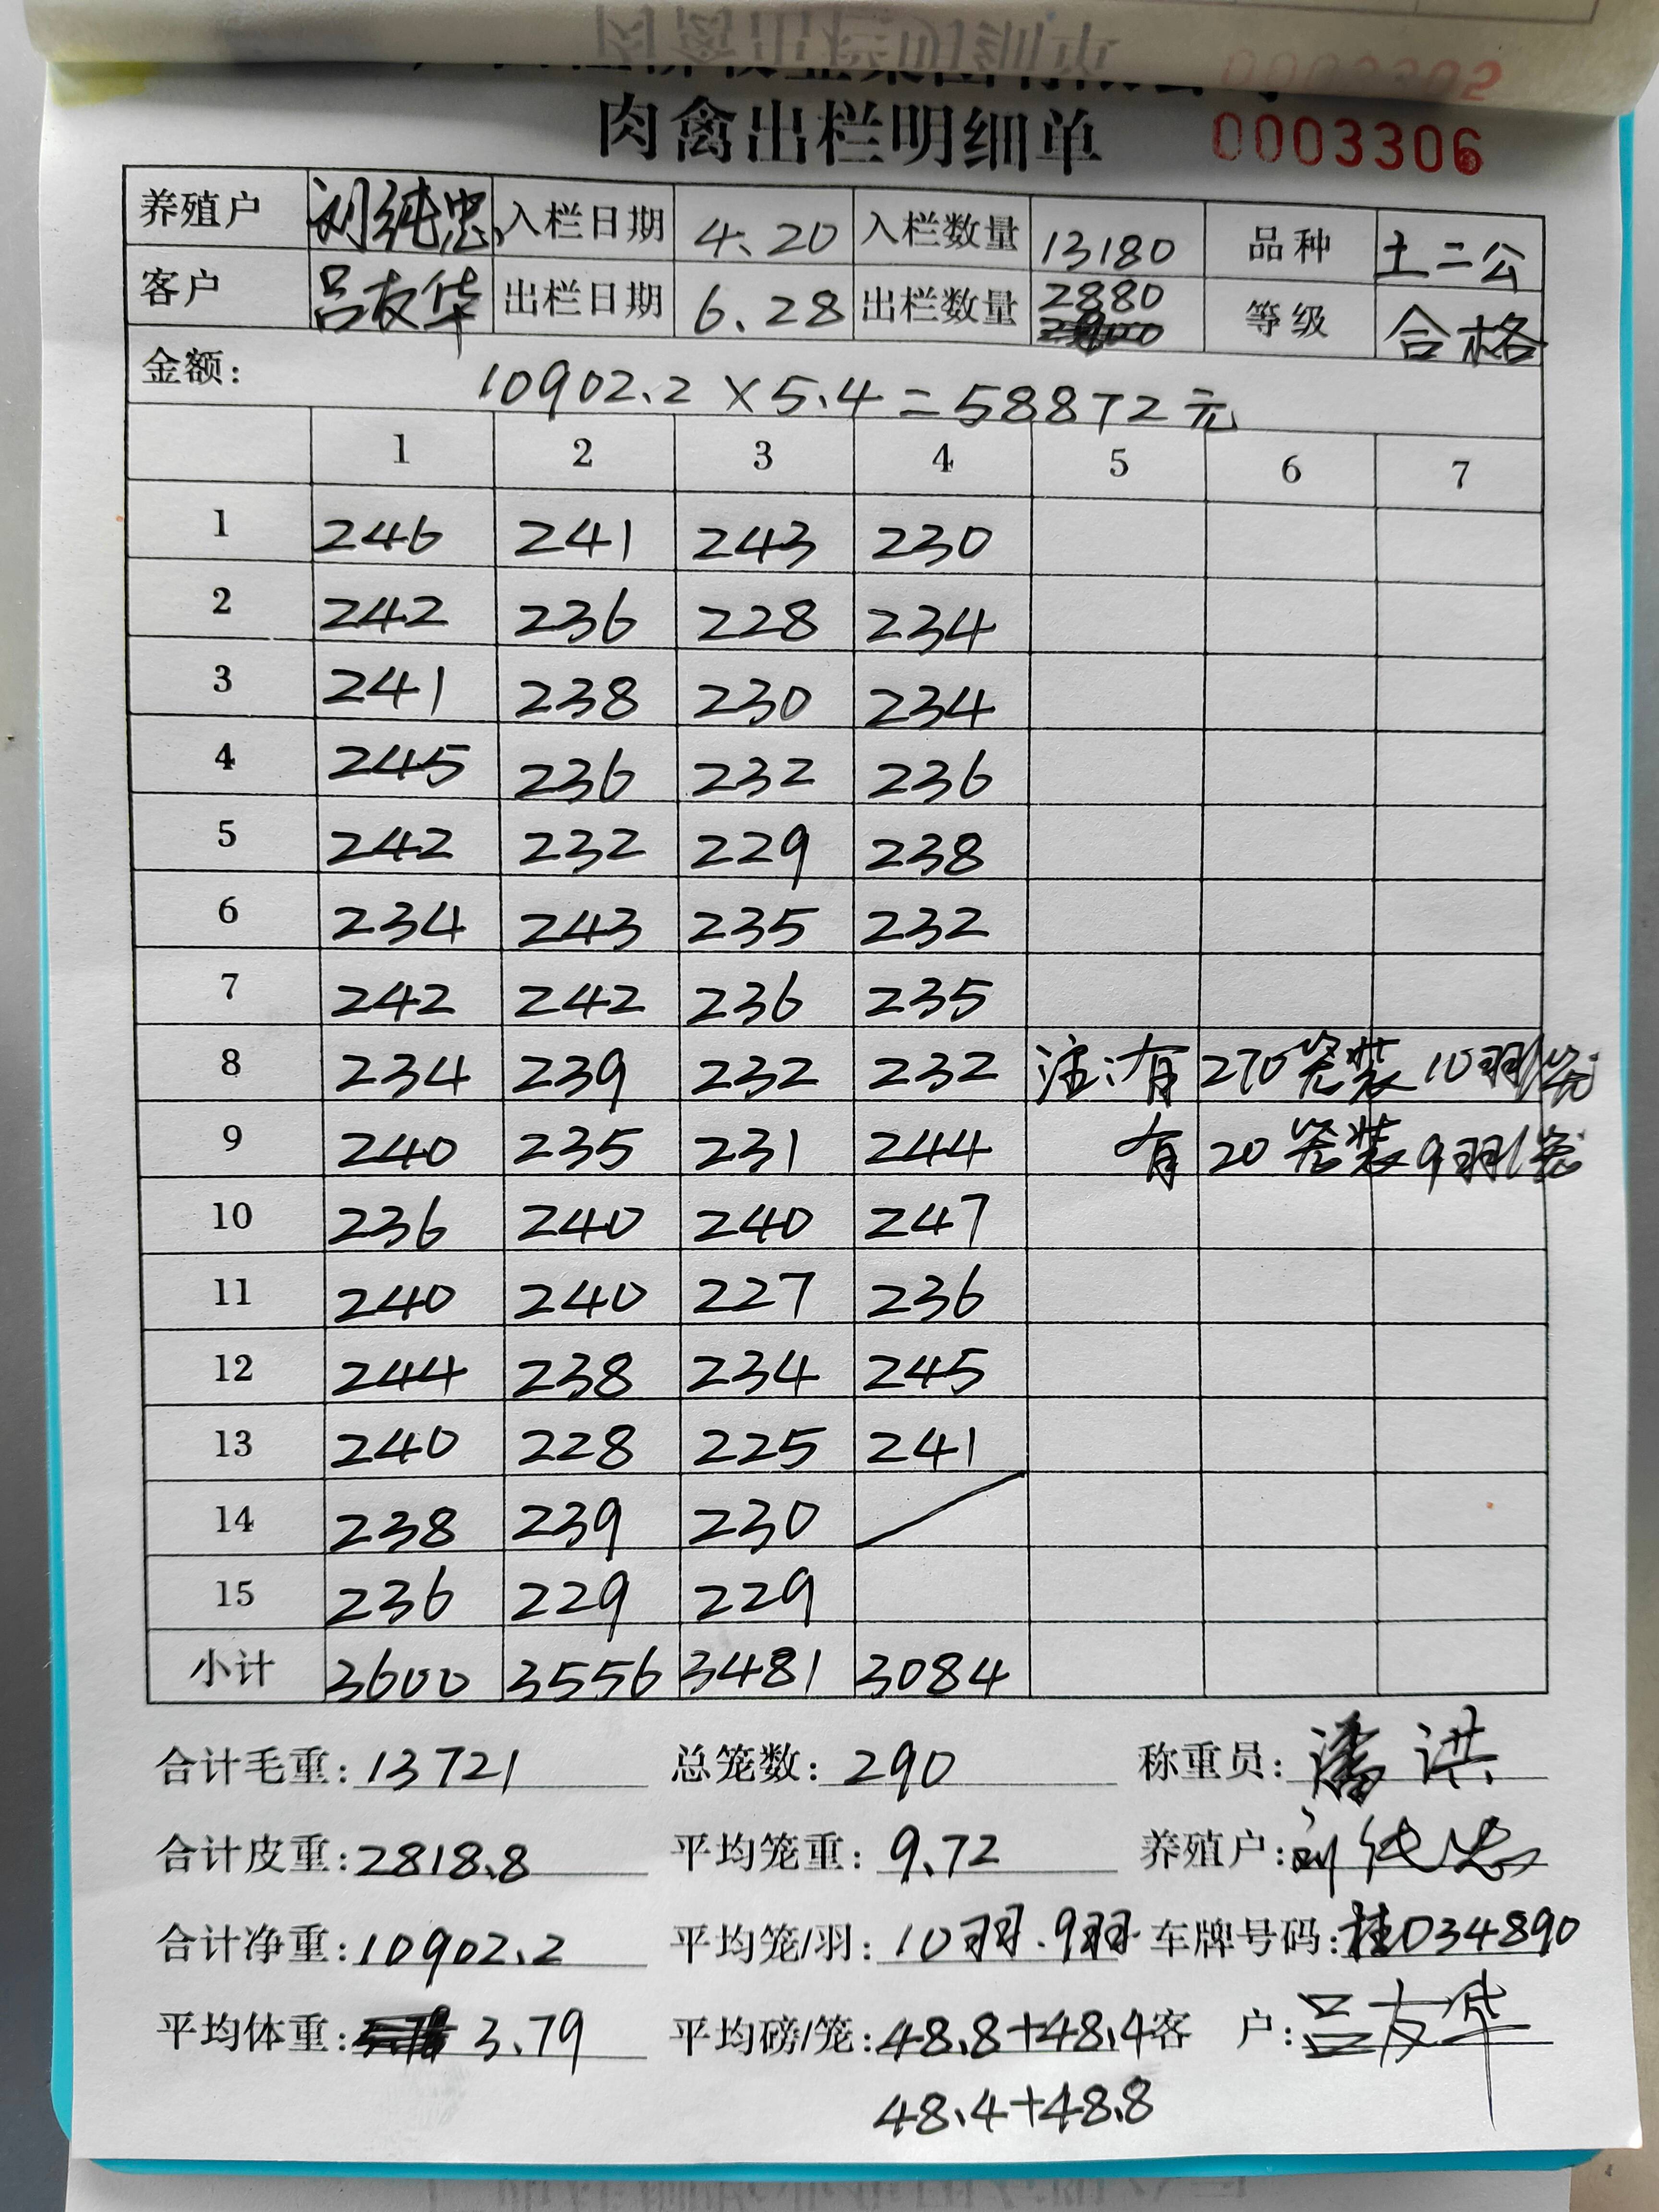 肉禽出栏明细单 0003306
养殖户 刘纯忠 入栏日期 4.20 入栏数量 13180 品种 土二公
客户 吕友华 出栏日期 6.28 出栏数量 2880 等级 合格
金额: 10902.2×5.4=58872元
1 2 3 4 5 6 7
1 246 241 243 230
2 242 236 228 234
3 241 238 230 234
4 245 236 232 236
5 242 232 229 238
6 234 243 235 232
7 242 242 236 235
8 234 239 232 232 注:有270笼装10羽/笼
9 240 235 231 244 有20笼装9羽/笼
10 236 240 240 247
11 240 240 227 236
12 244 238 234 245
13 240 228 225 241
14 238 239 230
15 236 229 229
小计 3600 3556 3481 3084
合计毛重:13721 总笼数:290 称重员:潘洪
合计皮重:2818.8 平均笼重:9.72 养殖户:刘纯忠
合计净重:10902.2 平均笼/羽:10羽.9羽 车牌号码:桂D34890
平均体重:3.79 平均磅/笼:48.8+48.4 客 户:吕友华
48.4+48.8